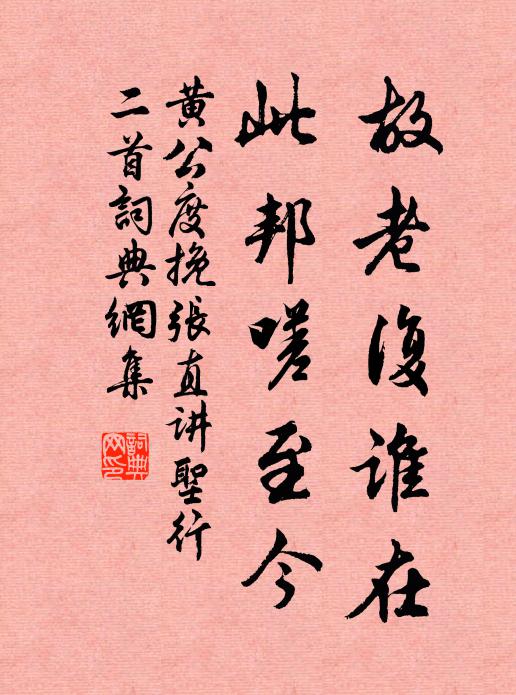 故老復谁在
此邦嗟至今
黄公度挽張直讲聖行
二首詞典網集
詞典网印